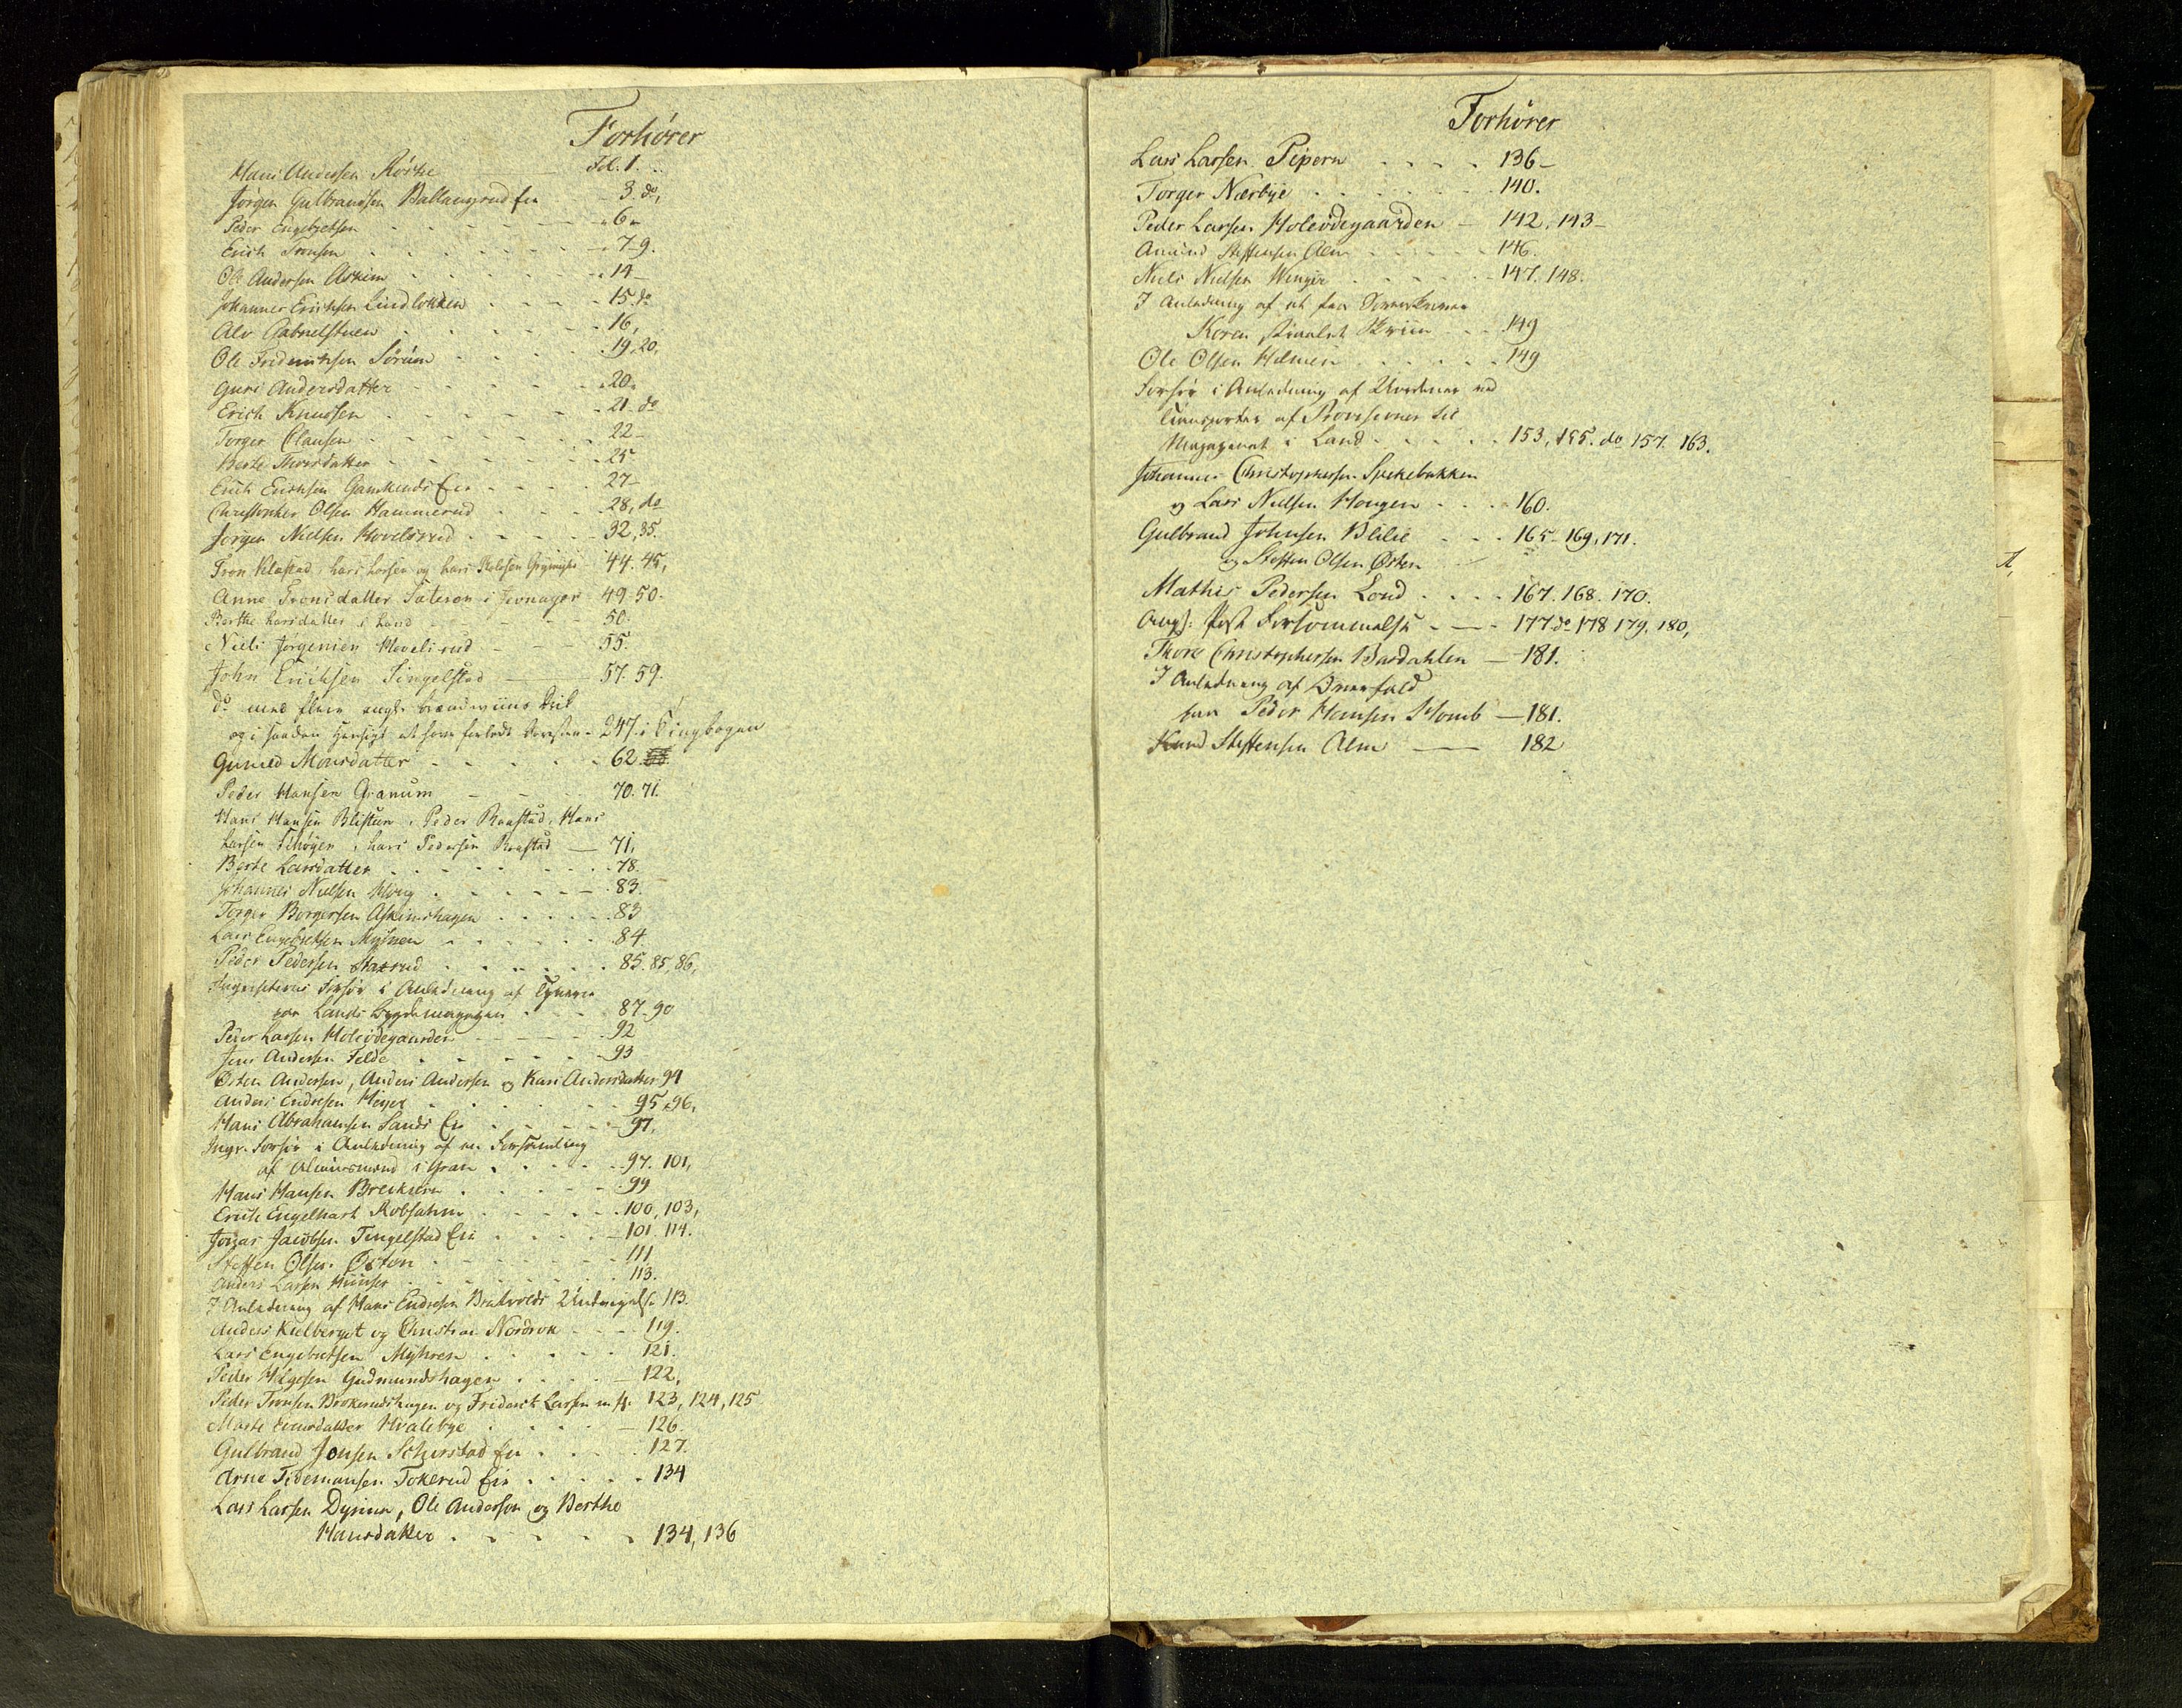 Forhörer
Hans Andersen Röste Fol. 1.
Jörgen Gulbrandsen Ballangrud Eie 3 do,
Peder Engebretsen 6
Erich Tronsen 7-9.
Ole Andersen Askim 14
Johannes Erichsen Lindlökken 15. do
Alv Gabrielstuen 16,
Ole Friderichsen Sörum 19, 20,
Guri Andersdatter 20.
Erich Knudsen 21. do
Torger Clausen 22
Berte Thorsdatter 25
Erich Erichsen Eie 27
Christopher Olsen Hammerud 28, do
Jörgen Nielsen Hovelsrud 32, 35.
Tron Lars Larsen og Lars 44. 45,
Anne Tronsdatter Sateren i Jevnager 49-50.
Berthe Larsdatter i Land 50.
Niels Jörgensen Hovelsrud 55.
John Erichsen Tingelstad 57. 59.
do med flere angl:
og i 247. i Tingbogen
Gunild Monsdatter 62
Peder Hansen Granum 70. 71.
Hans Hansen Blistuen, Peder Raastad, Hans
Larsen, Lars Pedersen Raastad 71,
Berte Larsdatter 78.
Johannes Nielsen 83.
Torger Borgersen Askimshagen 83
Lars Engebretsen Myhren 84.
Peder Pedersen Staxrud 85. 85, 86,
Forhör i Anledning af Tyverie
paa Lands Bygdemagazin 87-90
Peder Larsen Holeödegaarden 92
Jens Andersen Felde 93
Östen Andersen, Anders Andersen og Kari Andersdatter 94
Anders Endresen 95, 96,
Hans Abrahamsen Sands Eie 97,
Forhör i Anledning af en Forsamling
af Almuesmænd i Gran 97. 101,
Hans Hansen 99
Erich Engelhart Robsahm 100, 103,
Jacobsen Tingelstad Eie 101. 114.
Steffen Olsen Östen 111
Anders Larsen 113.
I Anledning af Hans Endresen 113.
Anders Kielberget og Christian 119.
Lars Engebretsen Myhren 121.
Peder Helgesen Gudmundshagen 122,
Peder Tronsen og Friderich Larsen m. fl. 123, 124, 125
Marte Hvalebye 126
Gulbrand Jonsen Eie 127.
Arne Tidemansen Tokerud Eie 134
Lars Larsen, Ole Andersen og Berthe
Hansdatter 134, 136
Forhörer
Lars Larsen Pipern 136
Torger Nærbye 140.
Peder Larsen Holeödegaarden 142. 143
Amund Steffensen Alm 146.
Niels Nielsen Wenger 147. 148.
I Anledning af et fra Sorenskriver
Koren 149
Ole Olsen Holmen 149
Forhör i Anledning af Uordener ved
Transporter af Provisioner til
Magazinet i Land 153, 155. do 157. 163.
Johannes Christophersen
og Lars Nielsen Haugen 160.
Gulbrand Johnsen Blilie 165-169, 171.
og Steffen Olsen Östen
Mathis Pedersen Lond 167. 168. 170.
Ang: Post Forsömmelse 177 do 178 179. 180,
Thore Christophersen Bardahlen 181.
I Anledning af Overfald
paa Peder Hansen Homb 181.
Knud Steffensen Alm 182